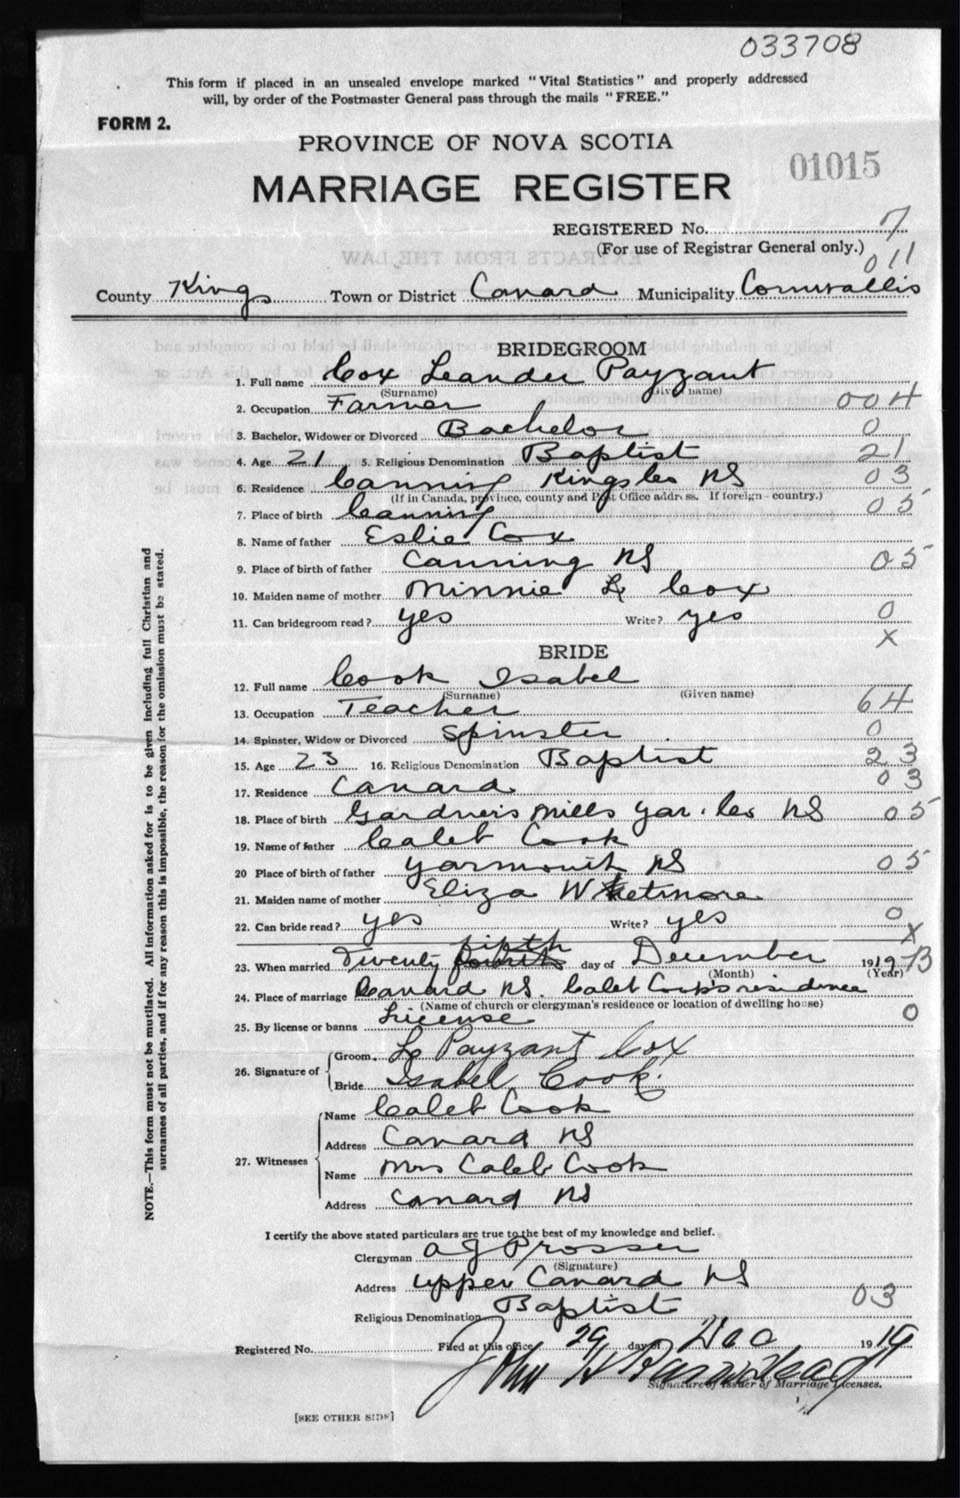 033708
This form if placed in an unsealed envelope marked "Vital Statistics" and properly addressed
will, by order of the Postmaster General pass through the mails "FREE."
FORM 2.
PROVINCE OF NOVA SCOTIA
01015
MARRIAGE REGISTER
REGISTERED No. 7
(For use of Registrar General only.)
011
County Kings Town or District Canard Municipality Cornwallis
BRIDEGROOM
1. Full name Cox Leander Payzant
(Surname) (Given name)
2. Occupation Farmer 004
3. Bachelor, Widower or Divorced Bachelor 0
4. Age 21 5. Religious Denomination Baptist 21
6. Residence Canning Kings Co NS 03
(If in Canada, province, county and Post Office address. If foreign - country.)
7. Place of birth Canning 05
8. Name of father Eslie Cox
9. Place of birth of father Canning NS 05
10. Maiden name of mother Minnie L Cox
11. Can bridegroom read? yes Write? yes 0
X
BRIDE
12. Full name Cook Isabel
(Surname) (Given name)
13. Occupation Teacher 64
14. Spinster, Widow or Divorced Spinster 0
15. Age 23 16. Religious Denomination Baptist 23
17. Residence Canard 03
18. Place of birth Gardners Mills Yar. Co NS 05
19. Name of father Caleb Cook
20 Place of birth of father Yarmouth NS 05
21. Maiden name of mother Eliza Whetmore
22. Can bride read? yes Write? yes 0
X
23. When married Twenty fifth day of December 1919 B
(Month) (Year)
24. Place of marriage Canard NS. Caleb Cook's residence
(Name of church or clergyman's residence or location of dwelling house)
25. By license or banns License 0
26. Signature of Groom L Payzant Cox
Bride Isabel Cook.
27. Witnesses
Name Caleb Cook
Address Canard NS
Name Mrs Caleb Cook
Address Canard NS
I certify the above stated particulars are true to the best of my knowledge and belief.
Clergyman A J Prosser
(Signature)
Address Upper Canard NS
Religious Denomination Baptist 03
Registered No. Filed at this office 29 day of Dec 1919
John W
Signature of Issuer of Marriage Licenses.
[SEE OTHER SIDE]
NOTE.—This form must not be mutilated. All information asked for is to be given including full Christian and
surnames of all parties, and if for any reason this is impossible, the reason for the omission must be stated.